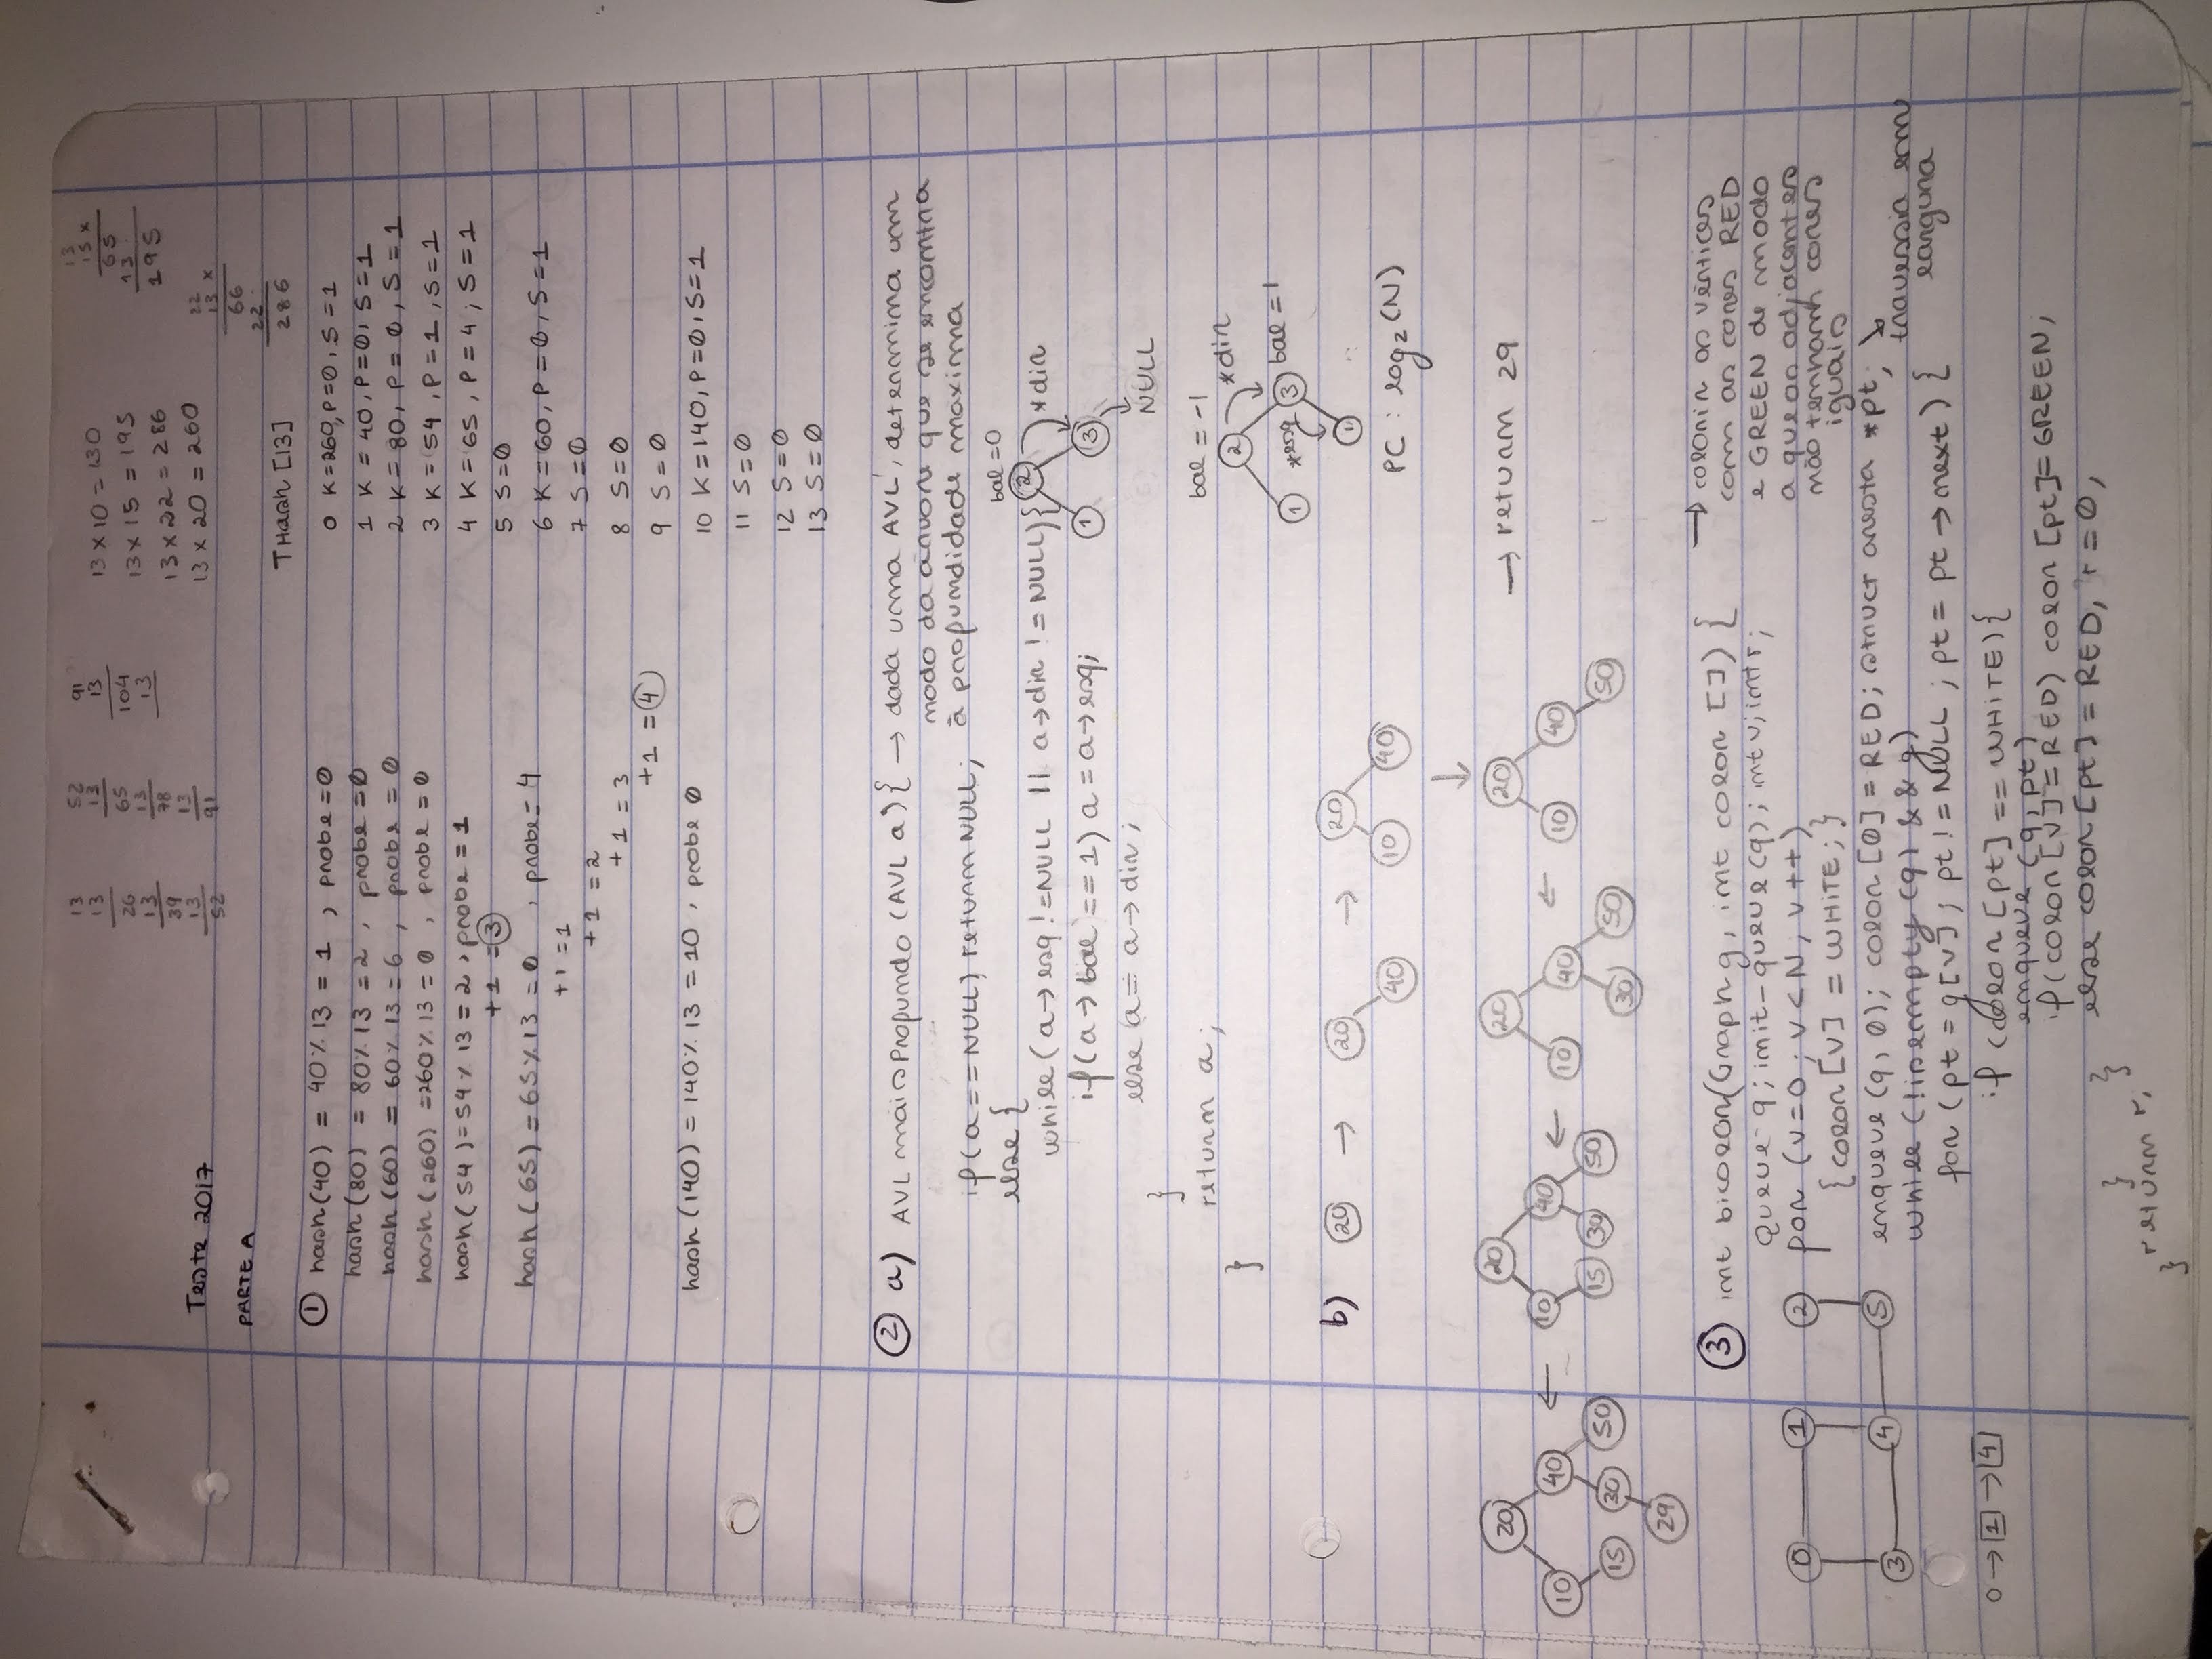 13
13
26
13
39
13
52
52
13
65
13
78
13
91
91
13
104
13
13 x 10 = 130
13 x 15 = 195
13 x 22 = 286
13 x 20 = 260
13
15 x
65
13
195
22
13 x
66
22
286
Teste 2017
PARTE A
① hash(40) = 40% 13 = 1 , probe=0
hash (80) = 80% 13 = 2 , probe =0
hash (60) = 60% 13 = 6 , probe = 0
hash (260) =260% 13 = 0 , probe = 0
hash( 54 )= 54% 13 = 2 , probe = 1
+1 = ③
hash (65) = 65% 13 = 0 , probe= 4
+1 = 1
+1 = 2
+1 = 3
+1 = ④
hash (140) = 140% 13 = 10 , probe 0
THash [13]
0 K=260, P=0, S=1
1 K = 40, P=0, S=1
2 K= 80, P= 0, S=1
3 K= 54 , P=1, S=1
4 K= 65, P=4; S=1
5 S=0
6 K=60, P=0, S=1
7 S=0
8 S=0
9 S=0
10 K=140, P=0, S=1
11 S=0
12 S=0
13 S=0
② a) AVL maisProfundo (AVL a) { → dada uma AVL, determina um
nodo da árvore que se encontra
à profundidade maxima
if(a==NULL) return NULL;
else {
while (a→esq !=NULL || a→dir != NULL){
if(a→bal == 1) a = a→esq;
else a = a→dir;
}
return a;
}
bal=0
2 *dir
1 3
NULL
bal = -1
2 *dir
1 *esq 3 bal=1
1
PC : log₂(N)
b) 20 → 20 → 20
40 10 40
↓
20 20 20 20 → return 29
10 40 ← 10 40 ← 10 40 ← 10 40
15 30 50 15 30 50 30 50 50
29
③ int bicolor(Graph g, int color []) {
Queue q; init-queue (q); int v; int r;
for (v=0; v<N; v++)
{color[v] = WHITE;}
enqueue (q, 0); color [0] = RED; struct aresta *pt;
while (!isempty (q) && g)
for (pt = g[v]; pt != NULL ; pt = pt→next) {
if (color [pt] == WHITE){
enqueue (q, pt)
if(color [v] = RED) color [pt]= GREEN;
else color [pt] = RED, r = 0;
} }
return r;
}
→ colorir os vértices
com as cores RED
e GREEN de modo
a que os adjacentes
não tenham cores
iguais
↳ travessia em
largura
0 1 2
3 4 5
0 → 1 → 4